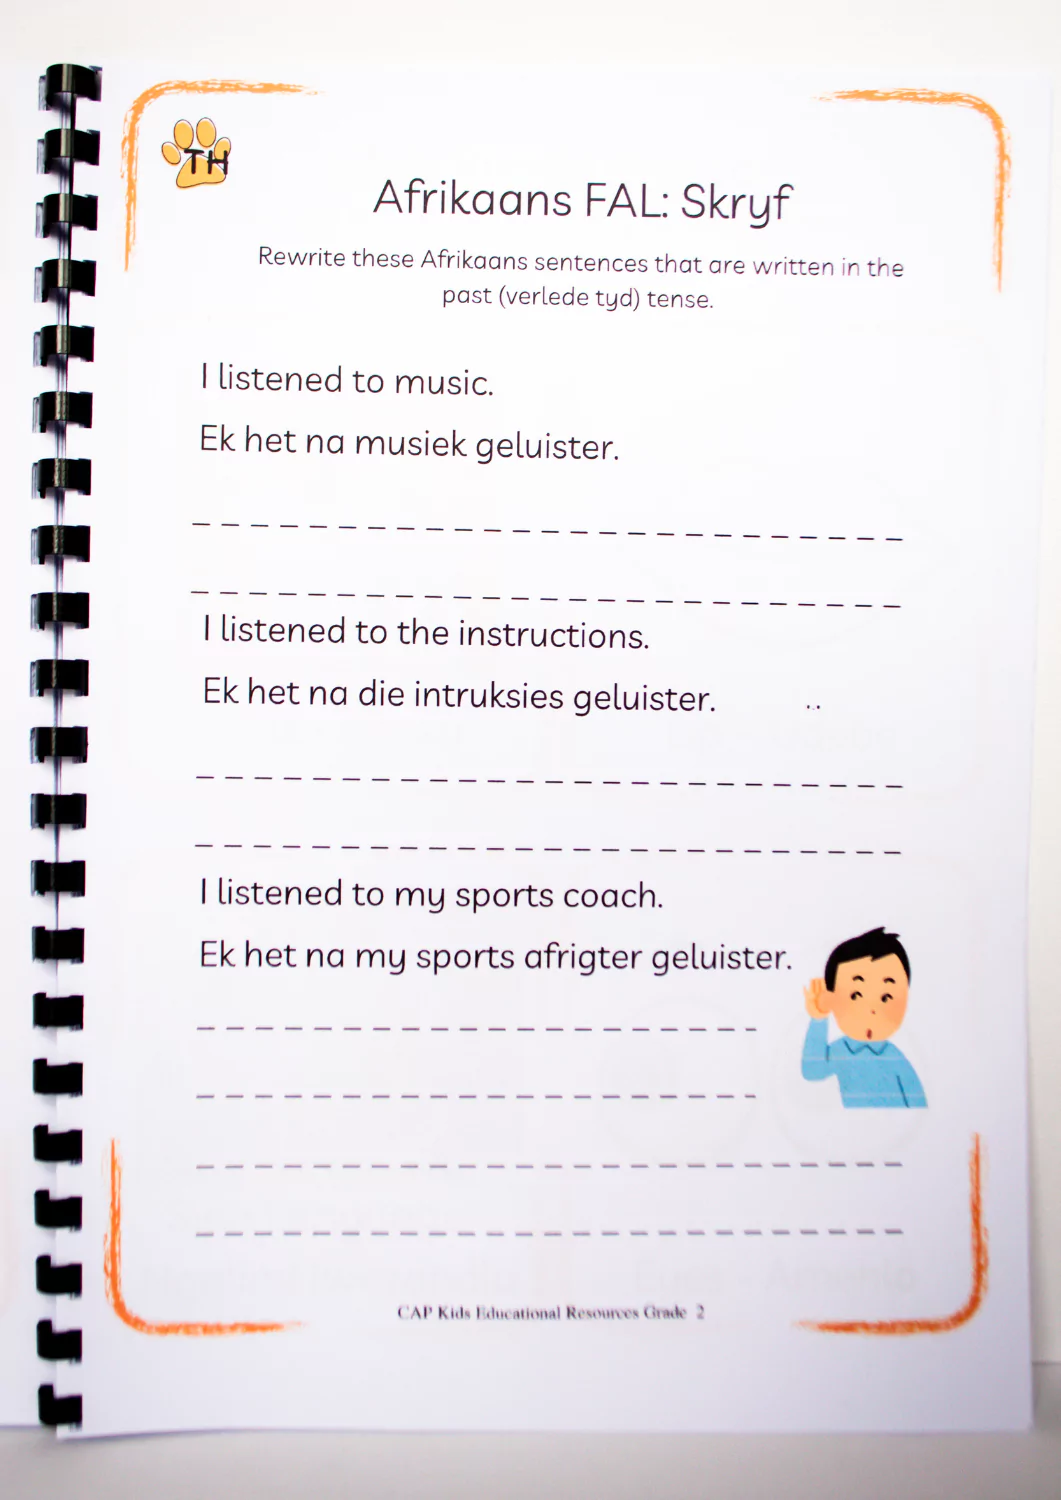 TH
Afrikaans FAL: Skryf
Rewrite these Afrikaans sentences that are written in the
past (verlede tyd) tense.
I listened to music.
Ek het na musiek geluister.
I listened to the instructions.
Ek het na die intruksies geluister.
I listened to my sports coach.
Ek het na my sports afrigter geluister.
CAP Kids Educational Resources Grade 2